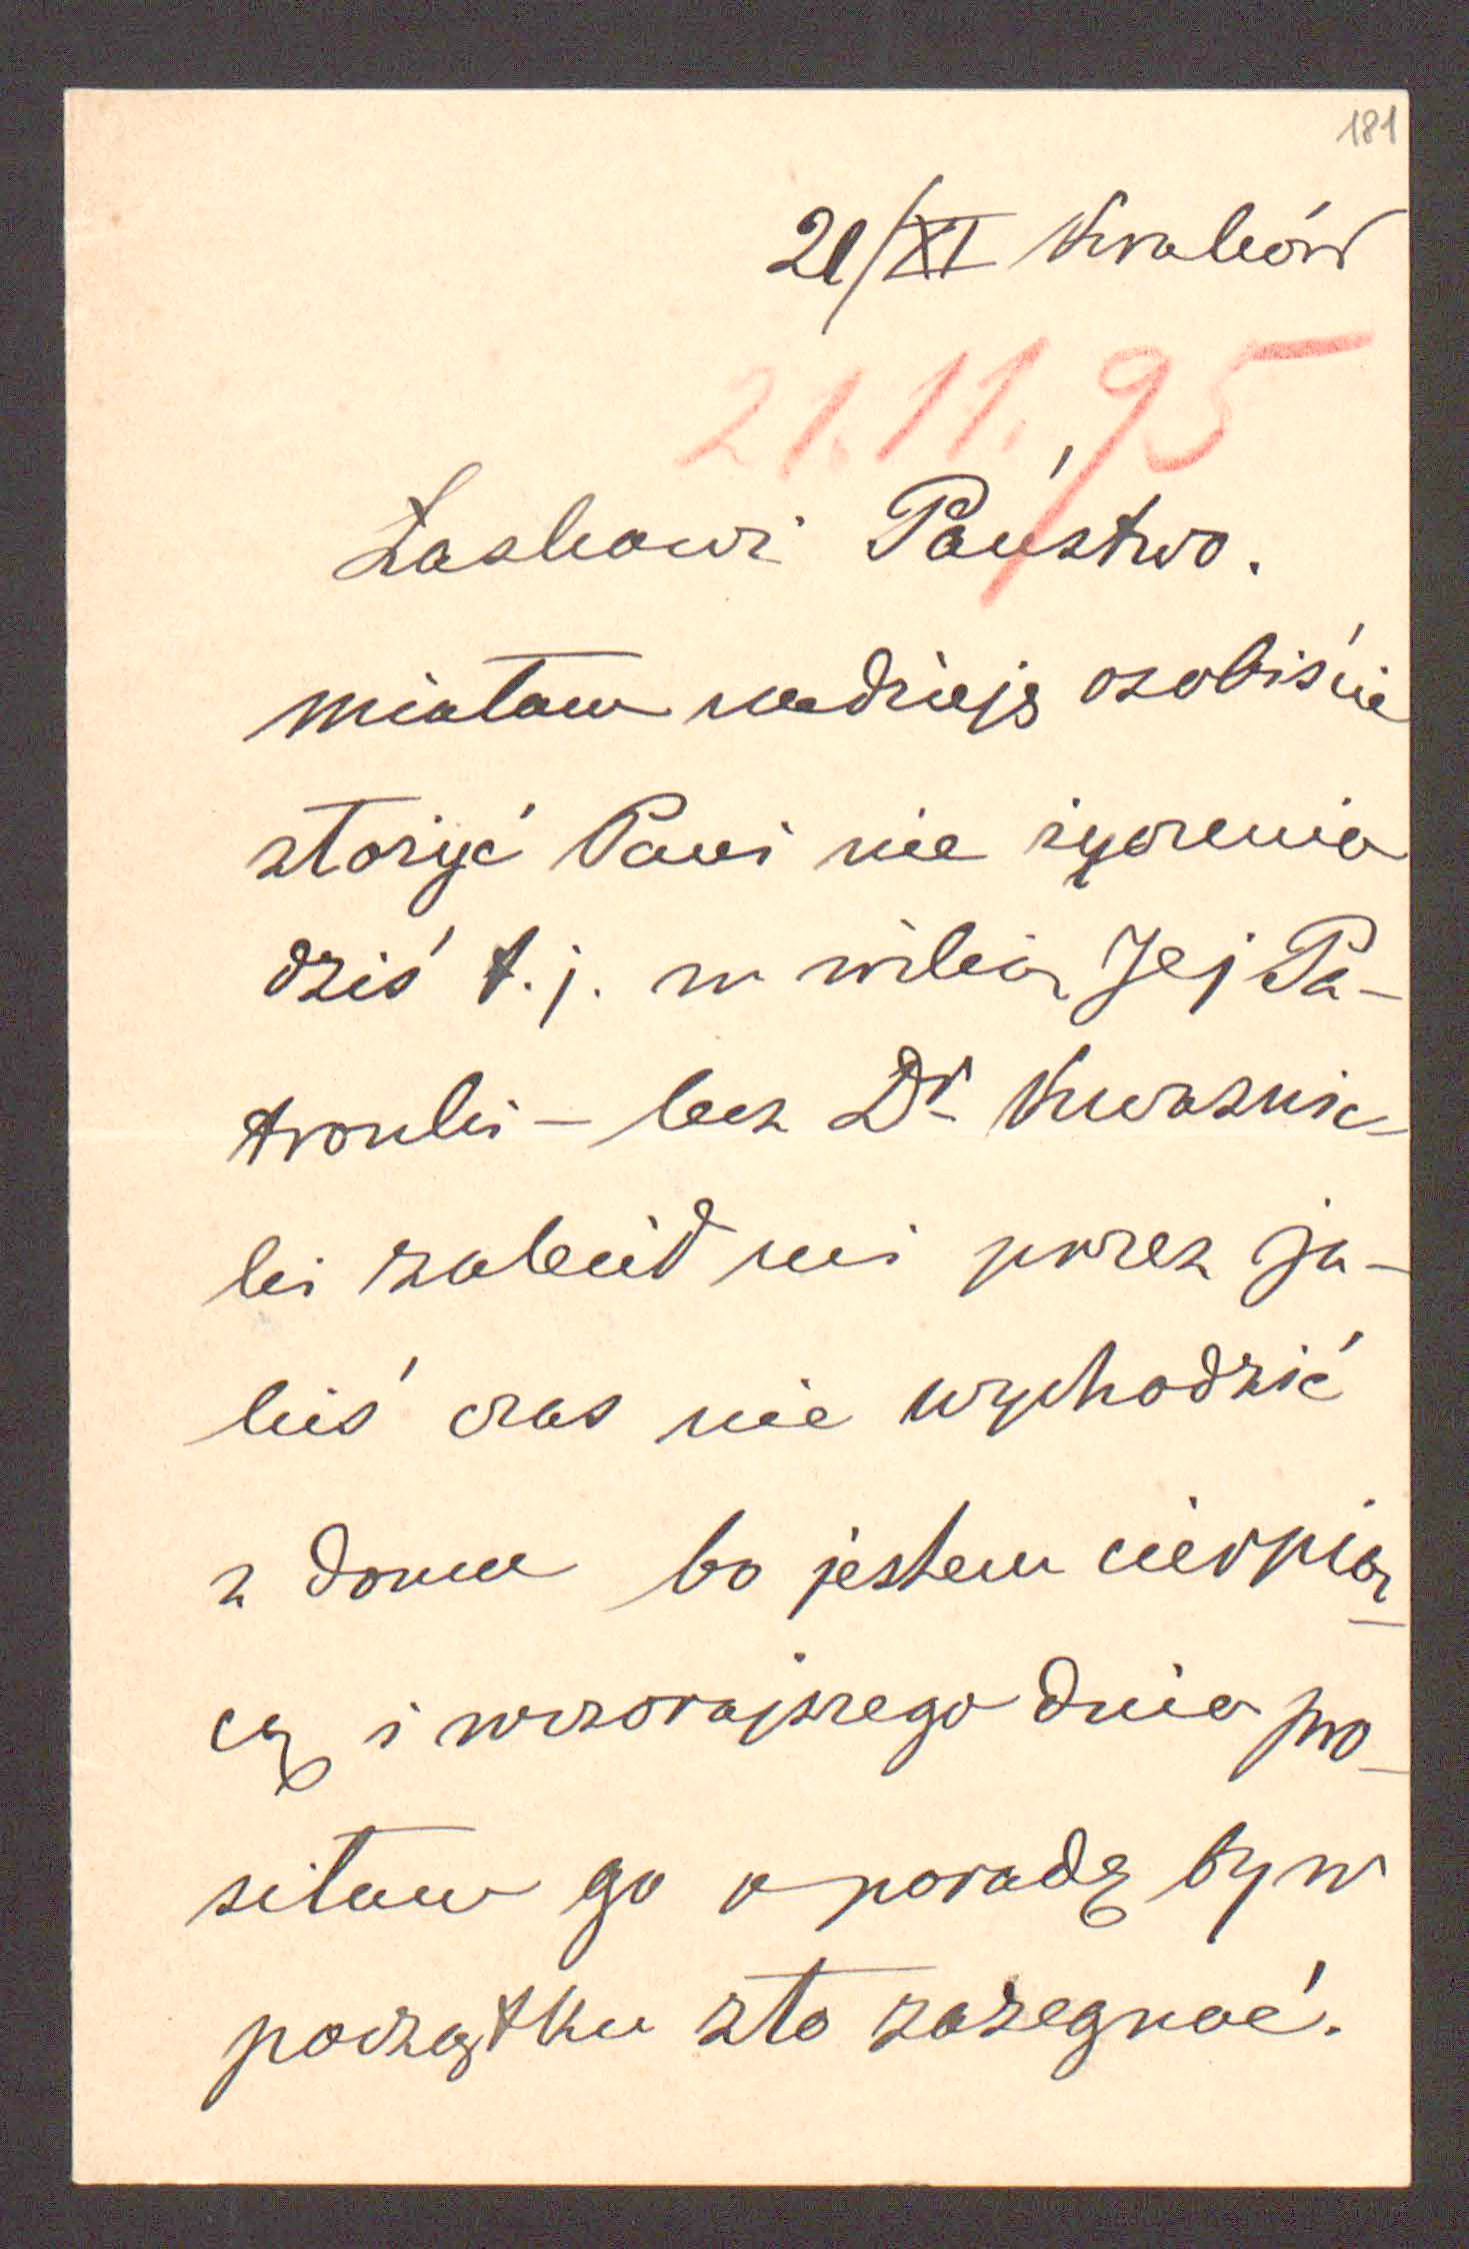 181
21/XI Kraków
21.11.95
Łaskawi Państwo.
miałam nadzieję osobiście
złożyć Pani życzenia
dziś t.j. w wilią Jej Pa-
tronki – lecz Dr Kwaśnic-
ki zalecił mi przez ja-
kiś czas nie wychodzić
z domu bo jestem cierpią-
cą i wczorajszego dnia pro-
siłam go o poradę by w
początku zło zażegnać.